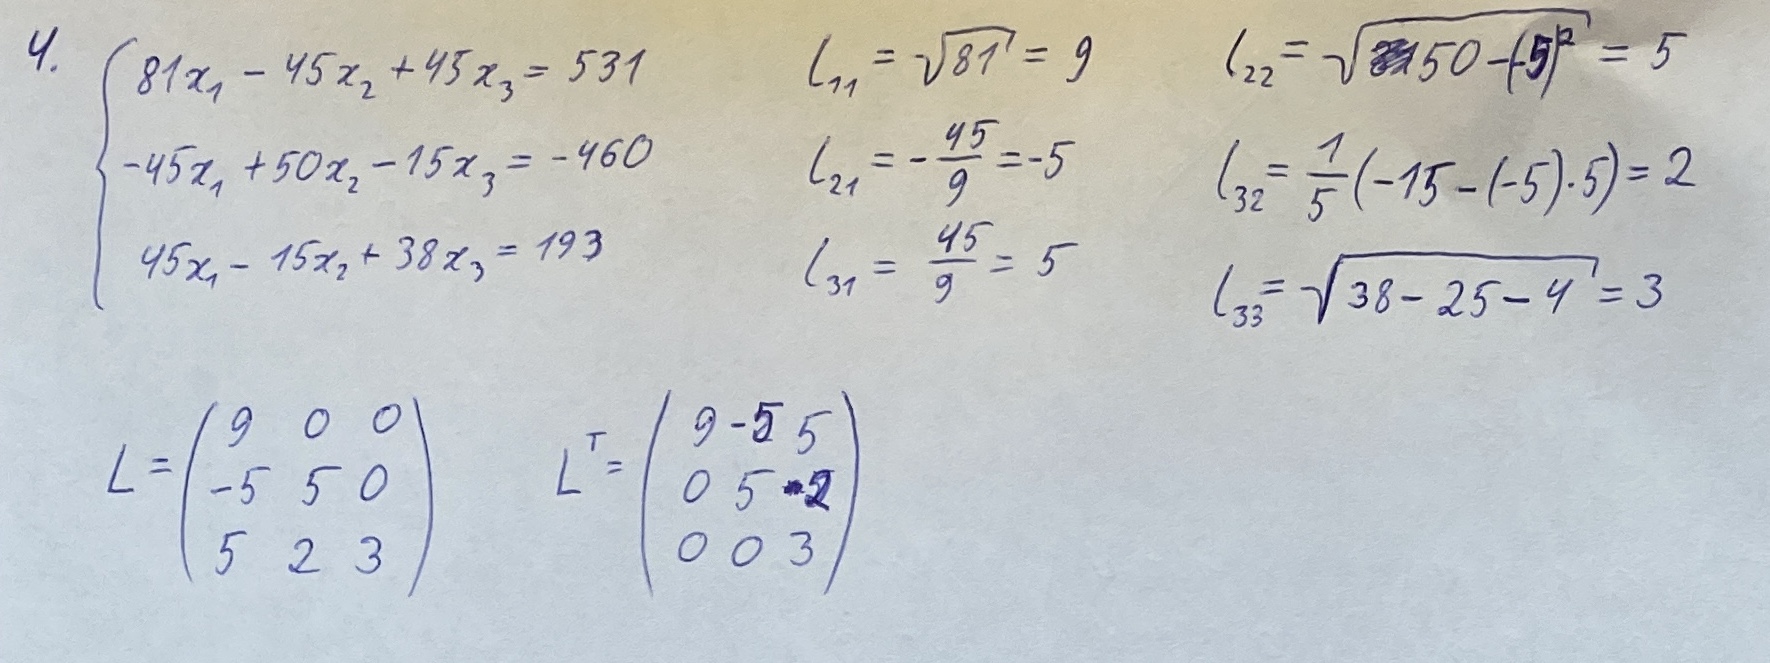 4. 81x₁ - 45x₂ + 45x₃ = 531
-45x₁ + 50x₂ - 15x₃ = -460
45x₁ - 15x₂ + 38x₃ = 193
l₁₁ = √81 = 9
l₂₁ = -45/9 = -5
l₃₁ = 45/9 = 5
l₂₂ = √(50 - (-5)²) = 5
l₃₂ = 1/5 (-15 - (-5)·5) = 2
l₃₃ = √(38 - 25 - 4) = 3
L = (9 0 0
-5 5 0
5 2 3)
Lᵀ = (9 -5 5
0 5 2
0 0 3)